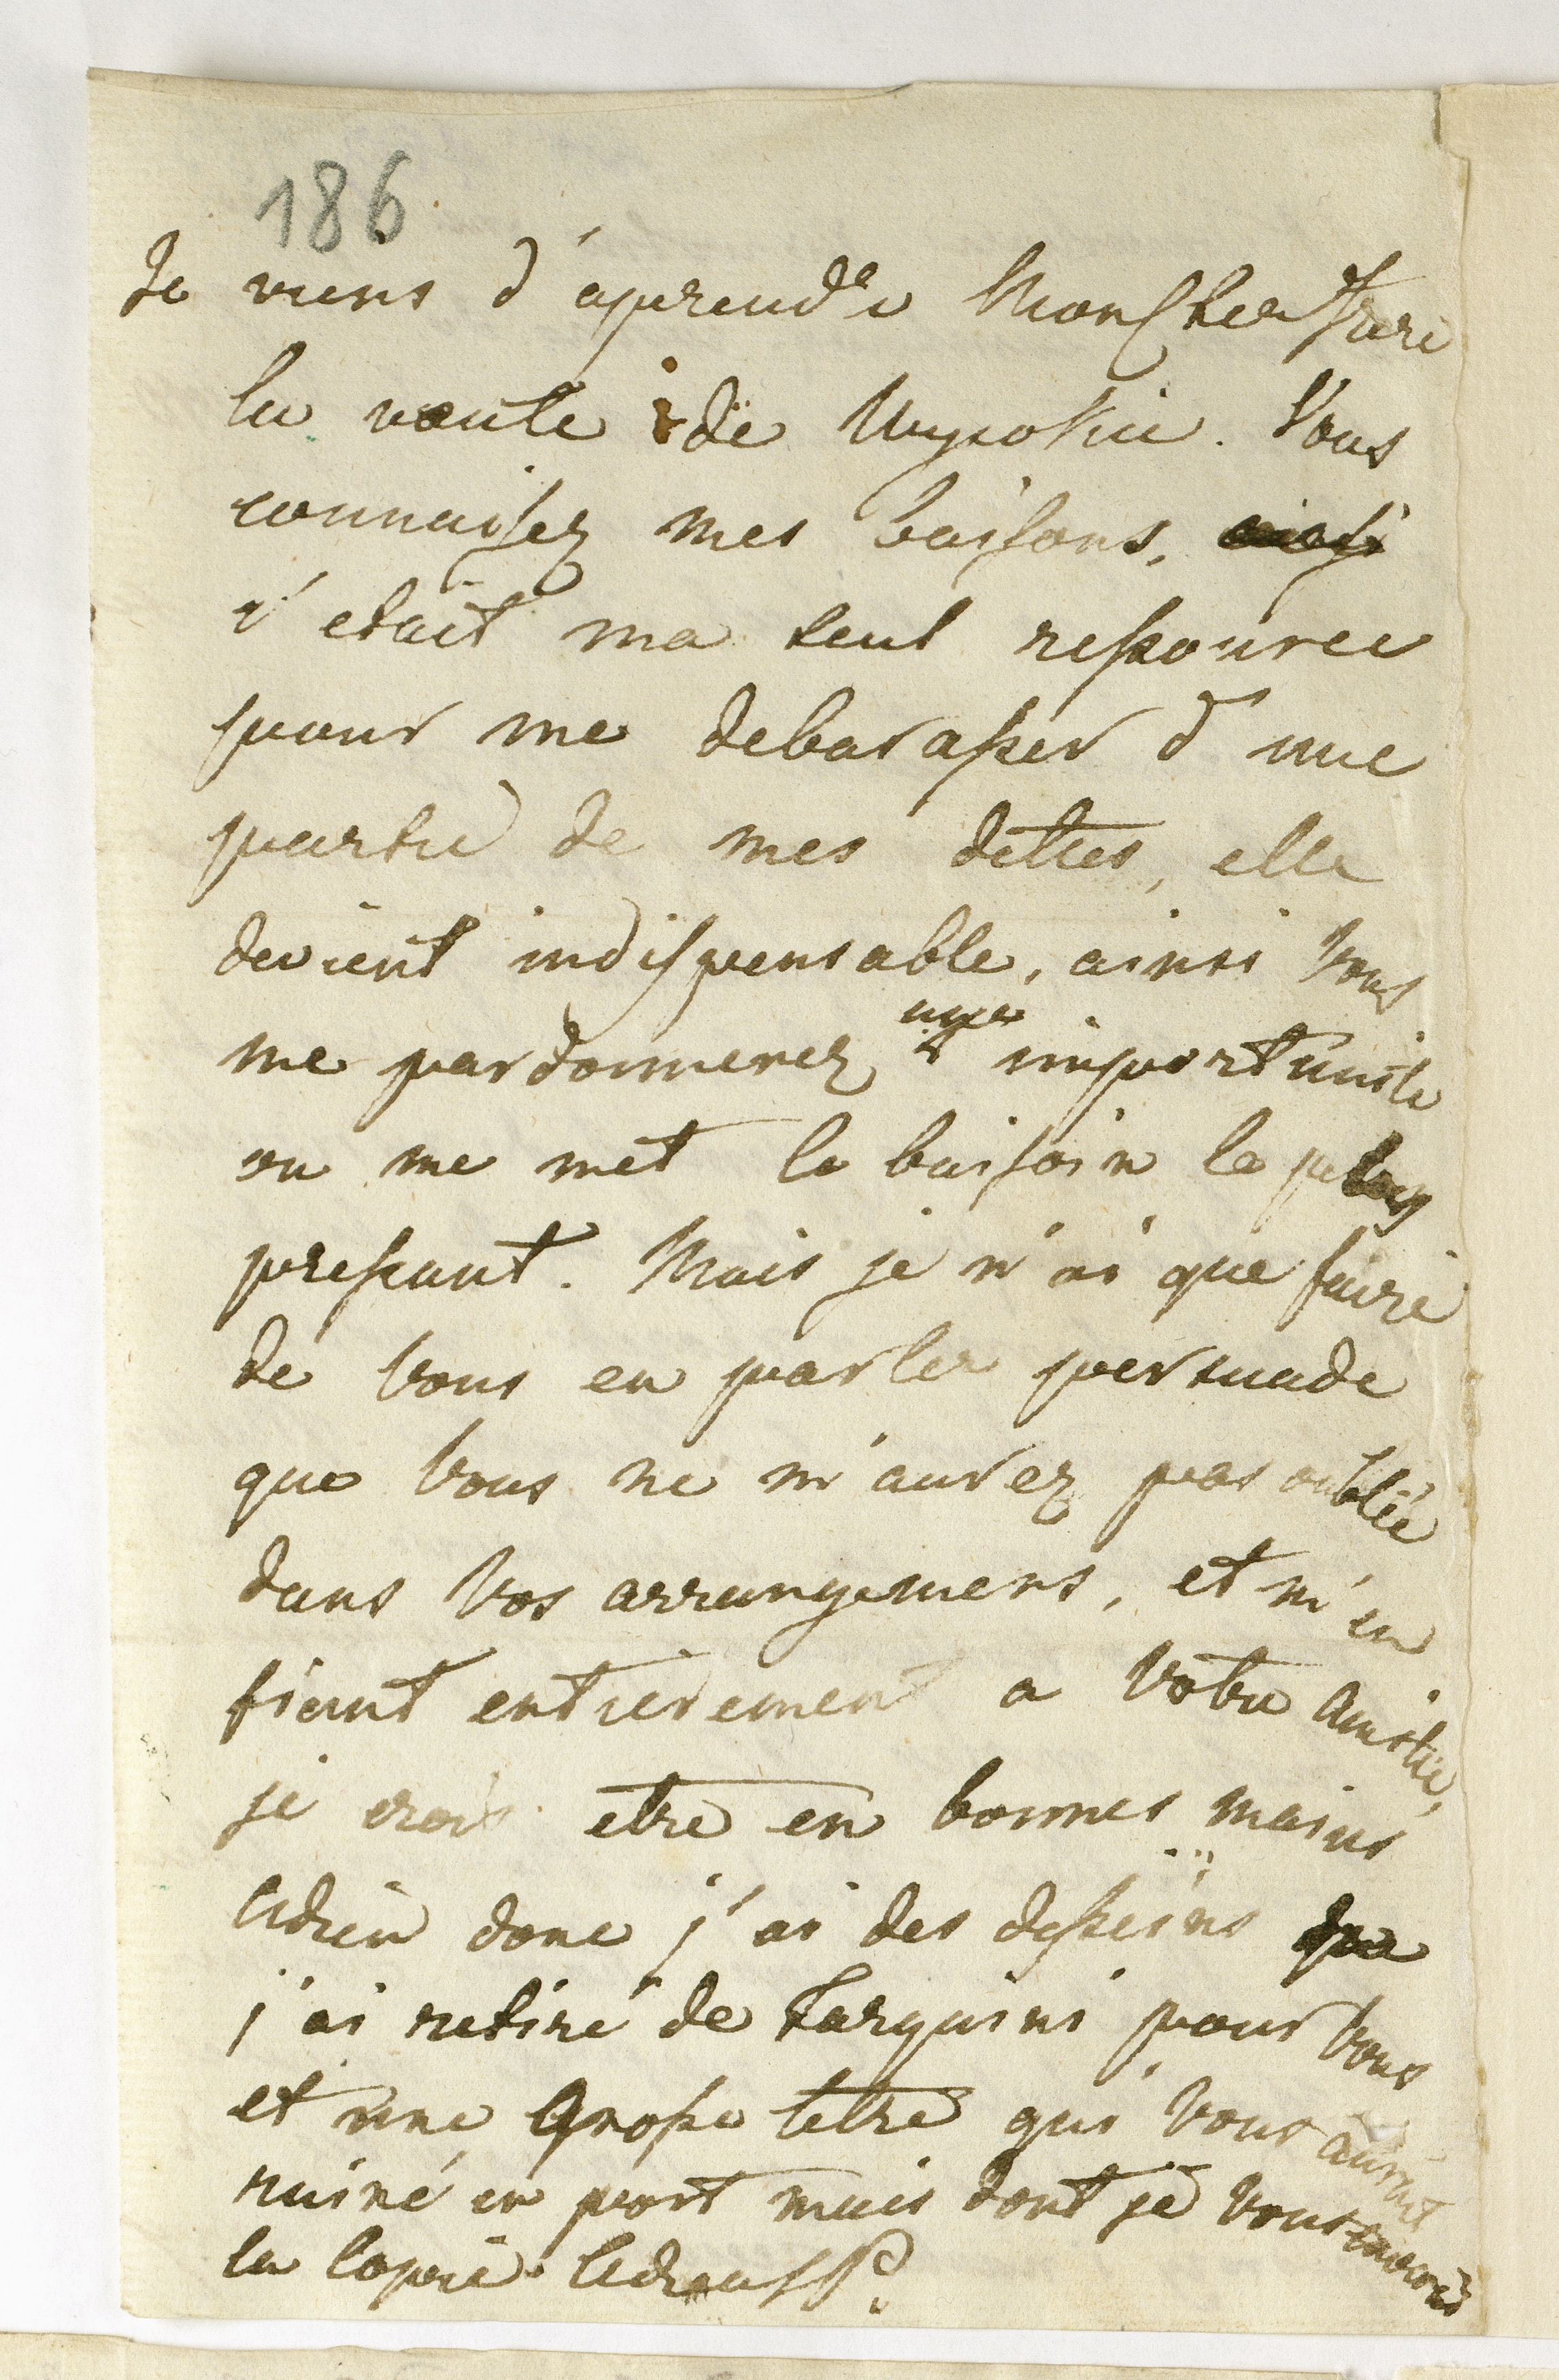 186
Je viens d'aprendre Mon Cher Frere
la vente de Wysokie. Vous
connaissez mes baisoins,
c'etait ma seul ressource
pour me debarasser d'une
partie de mes dettes, elle
devient indispensable, ainsi Vous
me pardonnerez une importunite
ou me met le baisoin le plus
pressant. Mais je n'ai que faire
de Vous en parler persuade
que Vous ne m'aurez pas oublié
dans Vos arrangemens, et m'en
fiant entierement a Votre Amitie,
je crois etre en bonnes mains
Adieu donc j'ai des desseins que
j'ai retiré de Tarquini pour Vous
et une Grosse lettre qui Vous aurait
ruiné en port mais dont je Vous envois
la Copie